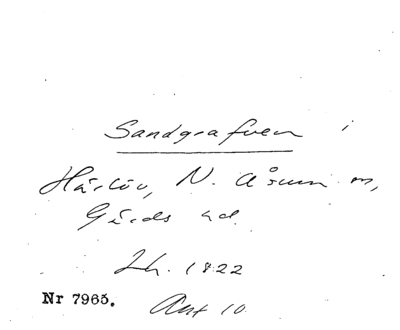 Sandgrafven i
Härlöv, N. Åsum m,
Gärds hd.
Lh. 1822
Ant 10
Nr 7965.